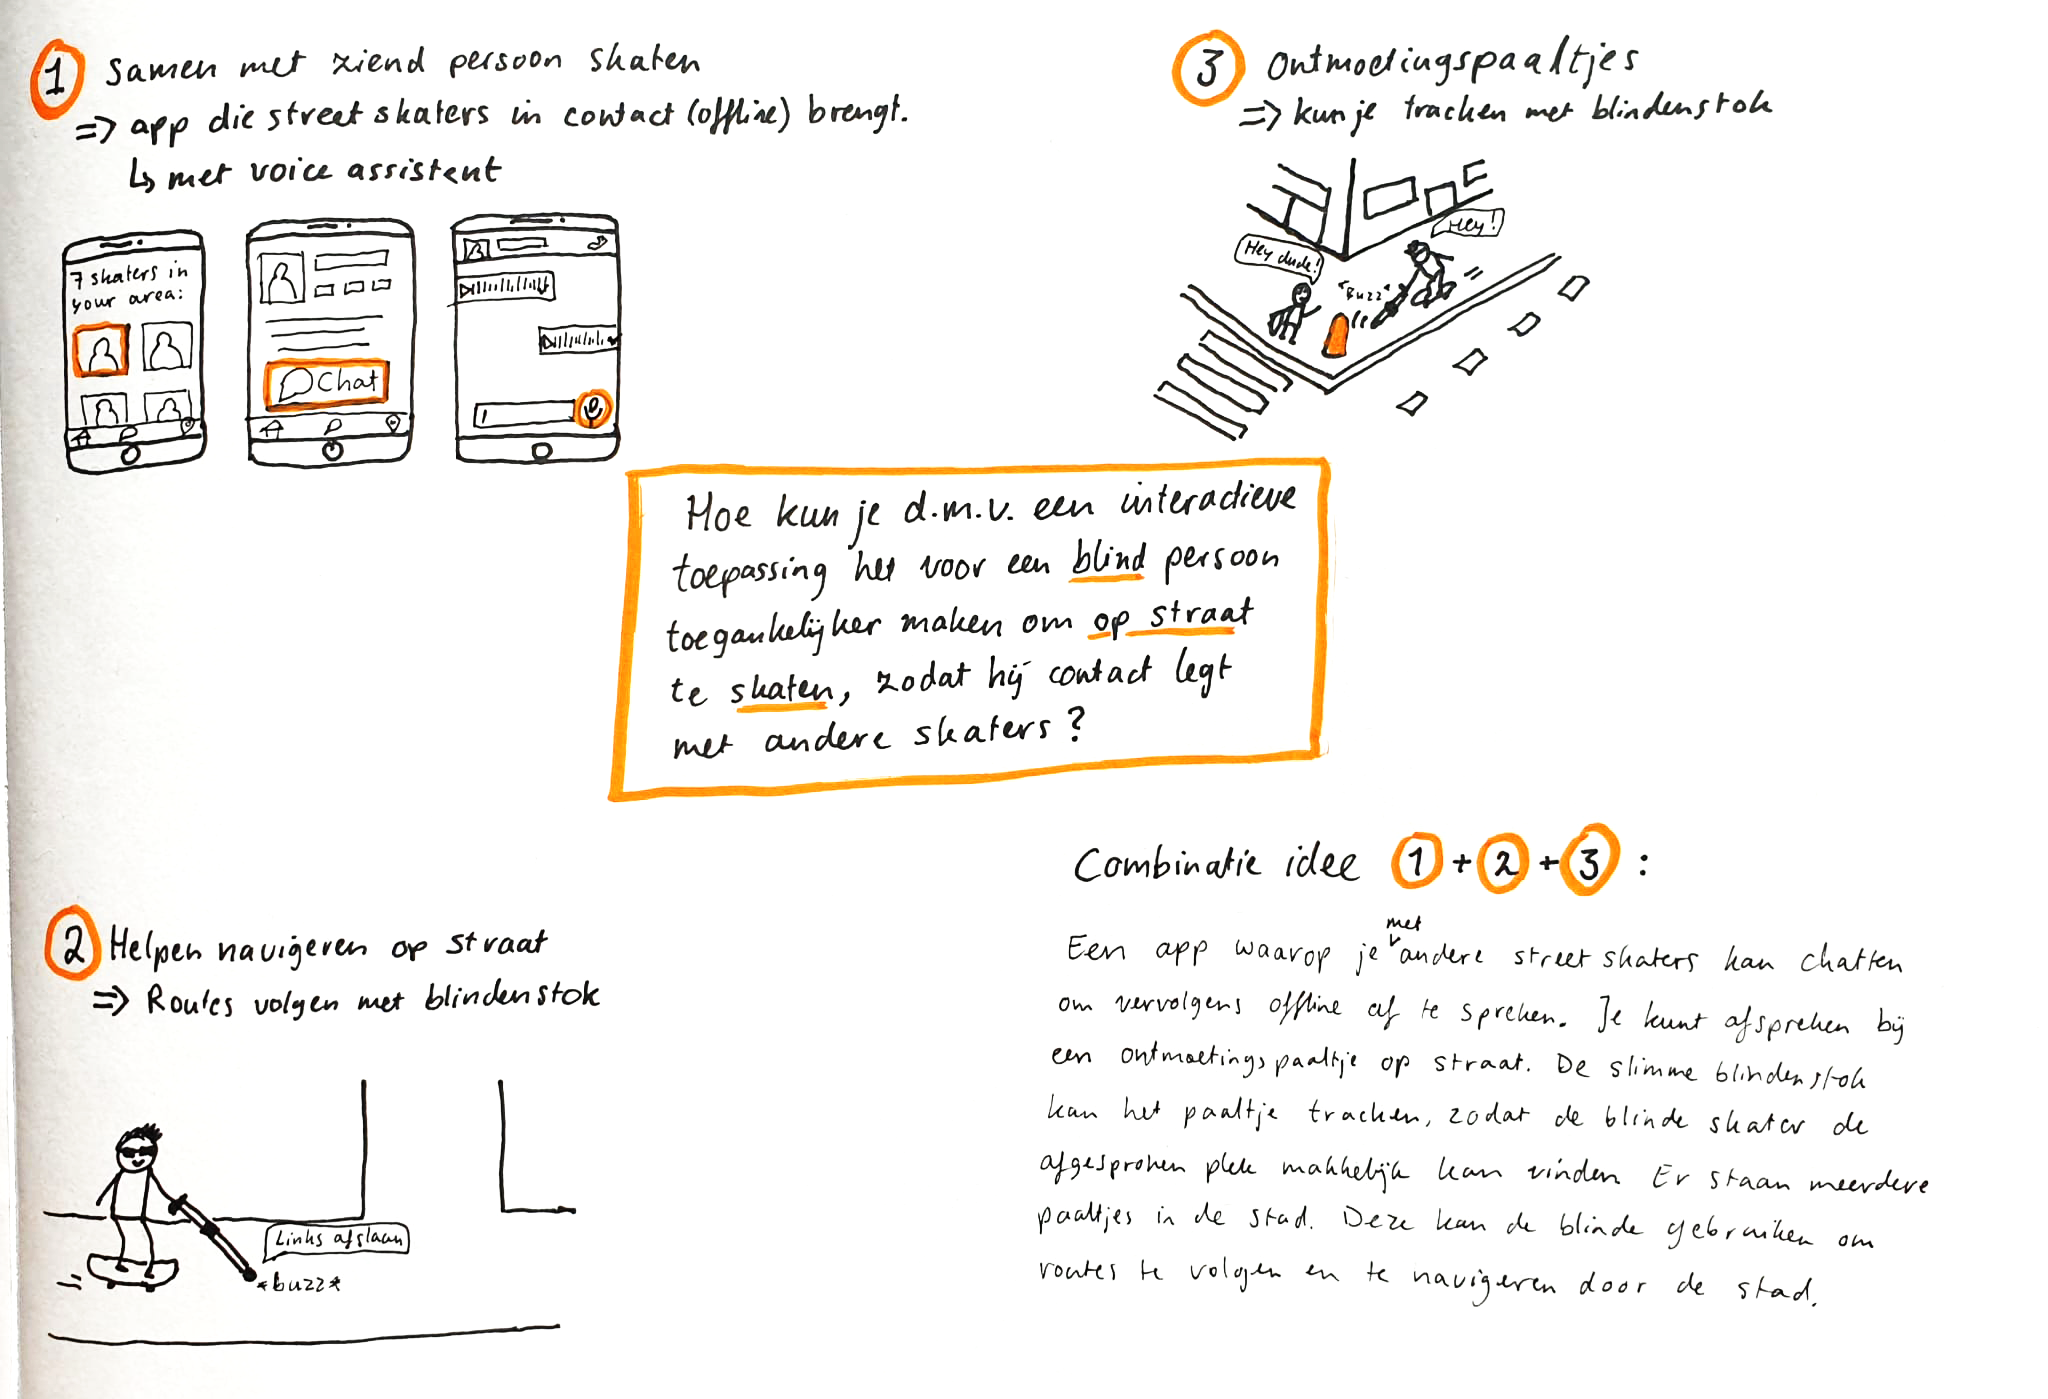 1 Samen met ziend persoon skaten
=> app die street skaters in contact (offline) brengt.
↳ met voice assistent
7 skaters in
your area:
Chat
3 Ontmoetingspaaltjes
=> kun je tracken met blindenstok
Hey!
Hey dude!
"Buzz"
Hoe kun je d.m.v. een interactieve
toepassing het voor een blind persoon
toegankelijker maken om op straat
te skaten, zodat hij contact legt
met andere skaters?
2 Helpen navigeren op straat
=> Routes volgen met blindenstok
Links afslaan
*buzz*
Combinatie idee 1 + 2 + 3 :
Een app waarop je met andere street skaters kan chatten
om vervolgens offline af te spreken. Je kunt afspreken bij
een ontmoetingspaaltje op straat. De slimme blindenstok
kan het paaltje tracken, zodat de blinde skater de
afgesproken plek makkelijk kan vinden. Er staan meerdere
paaltjes in de stad. Deze kan de blinde gebruiken om
routes te volgen en te navigeren door de stad.